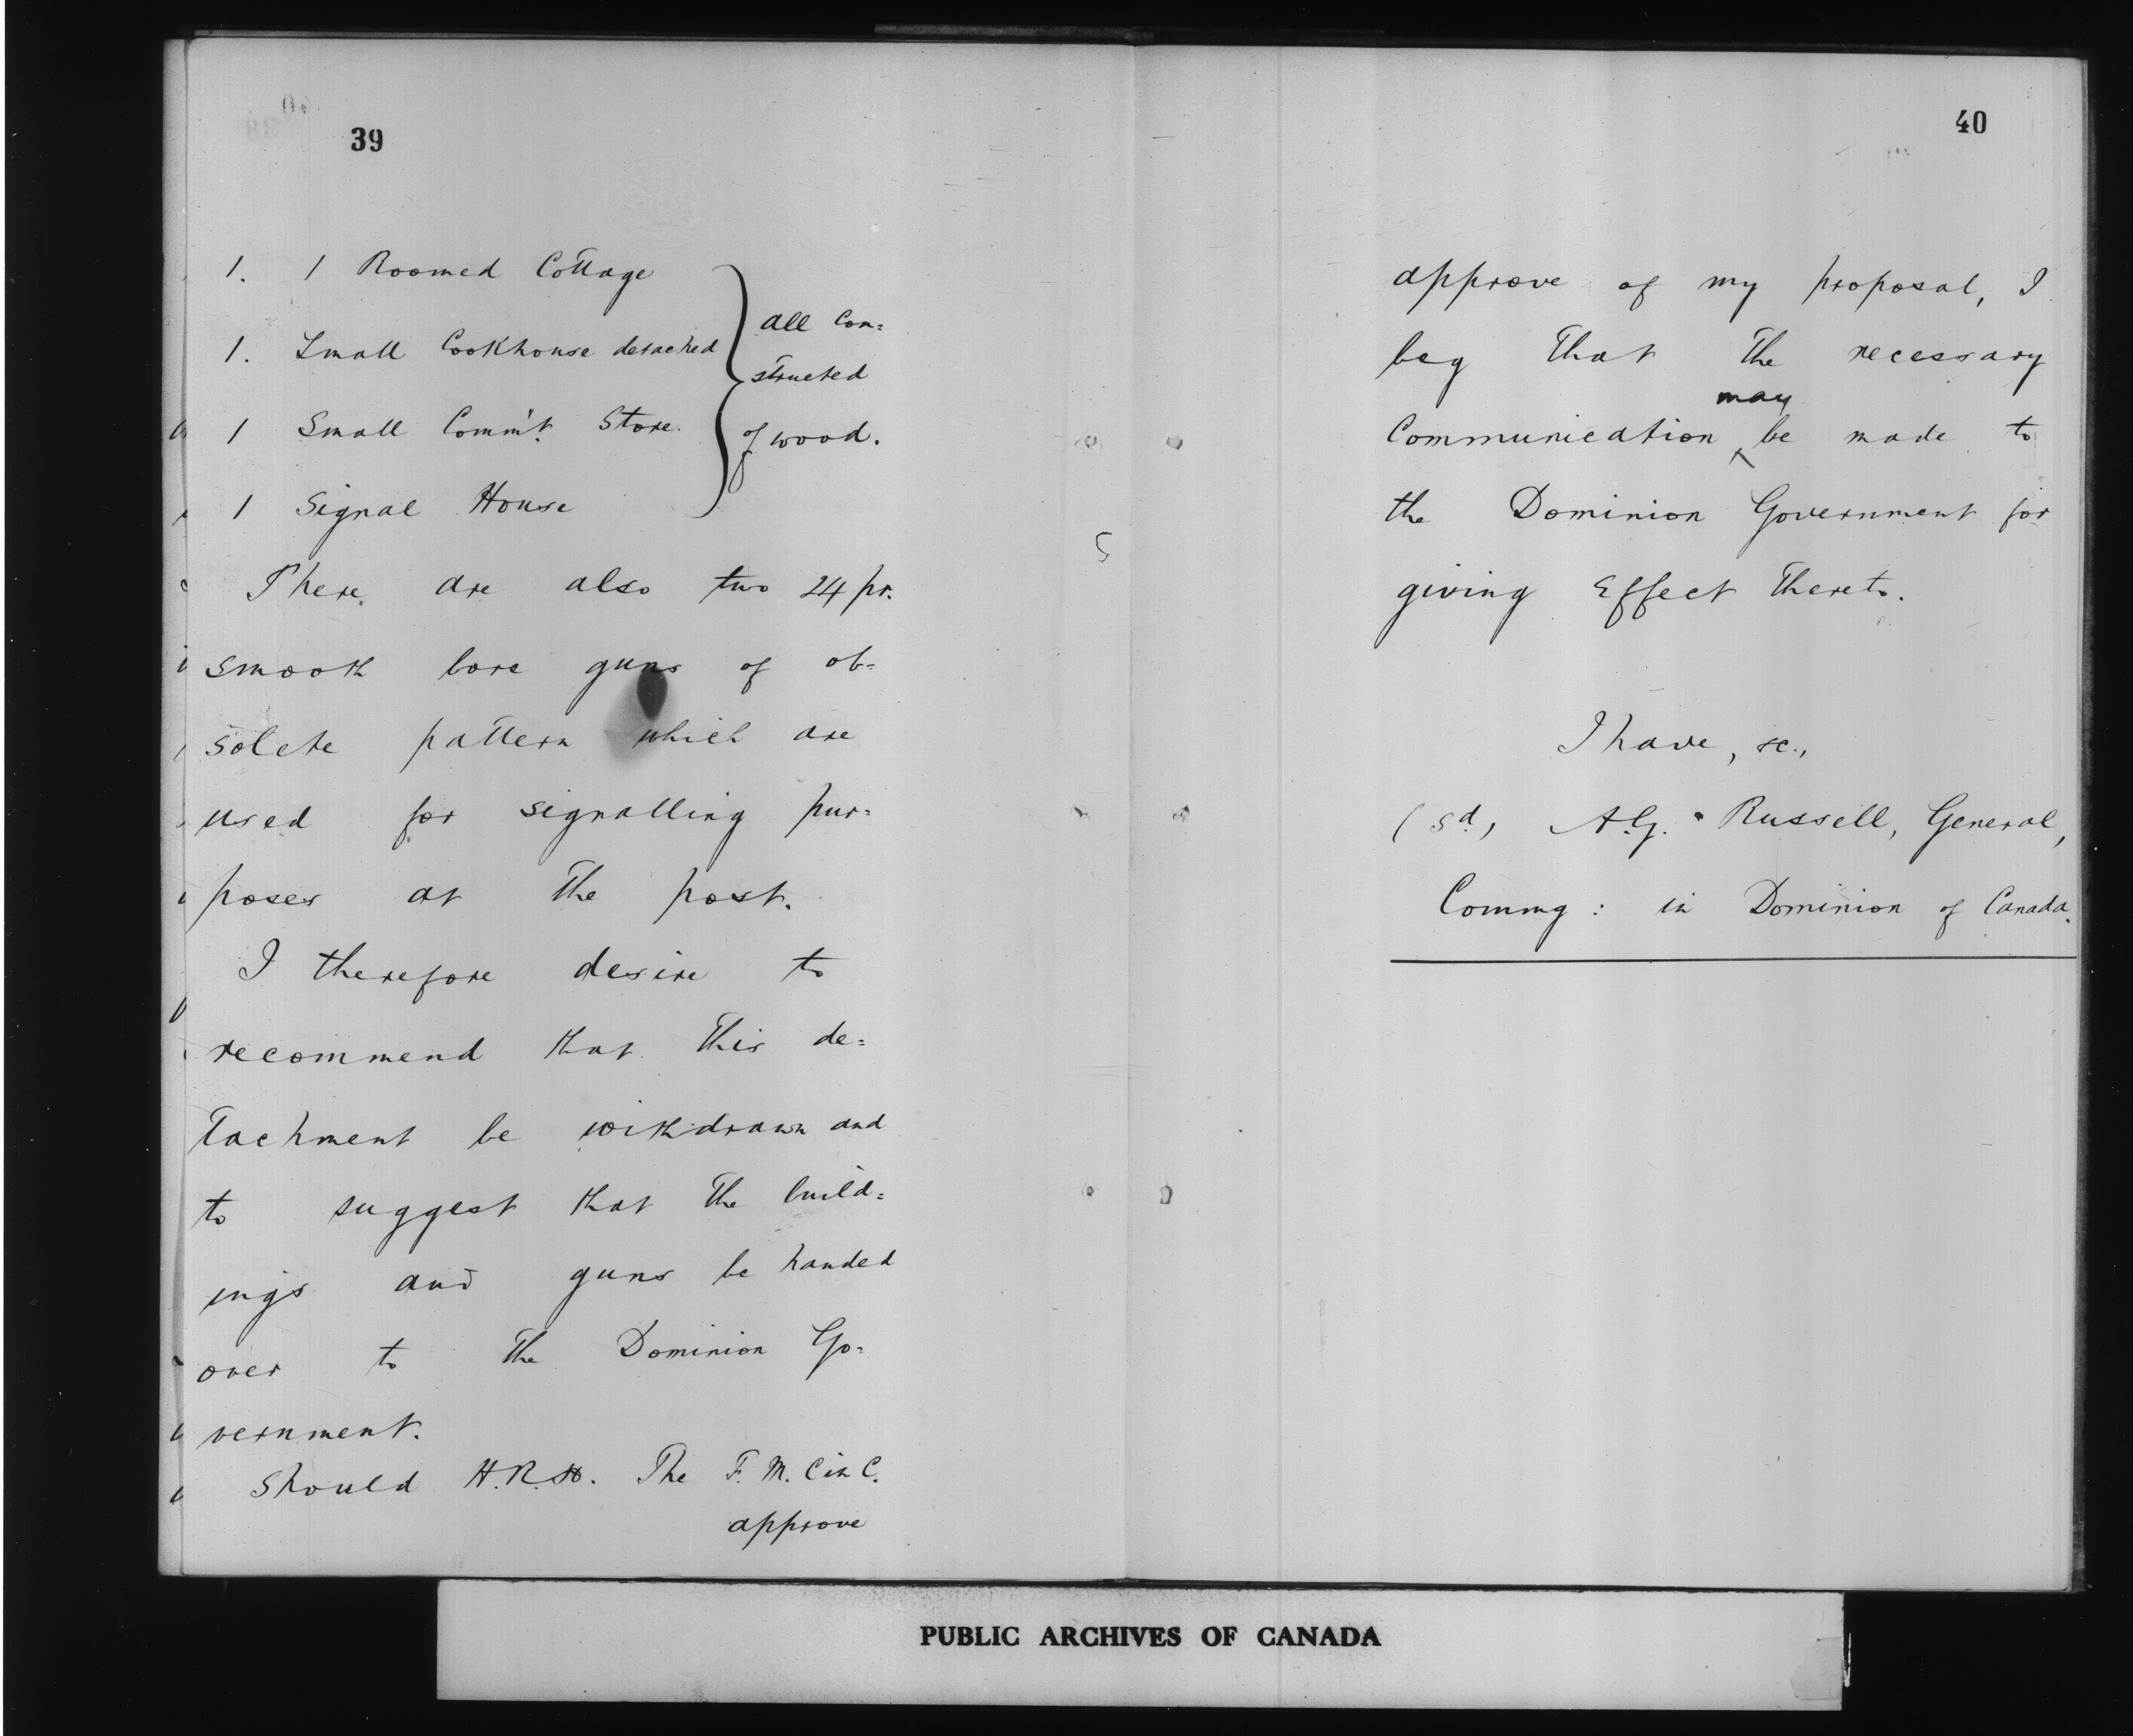 39
1. 1 Roomed Cottage
1. Small Cookhouse detached
1 Small Comm't. Store.
1 Signal House
all con=
structed
of wood.
There are also two 24 pr.
smooth bore guns of ob=
solete pattern which are
used for signalling pur=
poses at the post.
I therefore desire to
recommend that this de=
tachment be withdrawn and
to suggest that the build=
ings and guns be handed
over to the Dominion Go=
vernment.
Should H.R.H. The F.M. C in C.
approve
40
approve of my proposal, I
beg that the necessary
Communication may be made to
the Dominion Government for
giving Effect thereto.
I have, &c.,
(Sd.) A.G. Russell, General,
Commg: in Dominion of Canada.
PUBLIC ARCHIVES OF CANADA